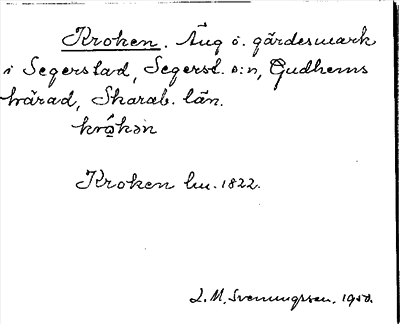 Kroken. Äng o. gärdesmark
i Segerstad, Segerst. s:n, Gudhems
härad, Skarab. län.
krókən
Kroken lm. 1822.
L. M. Svenungsson. 1950.